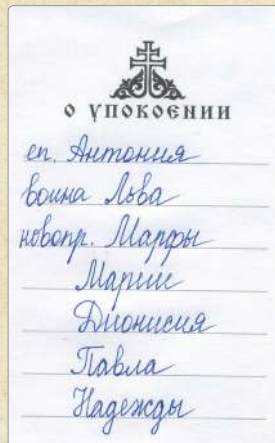 О УПОКОЕНИИ
еп. Антония
воина Льва
новопр. Марфы
Марии
Дионисия
Павла
Надежды